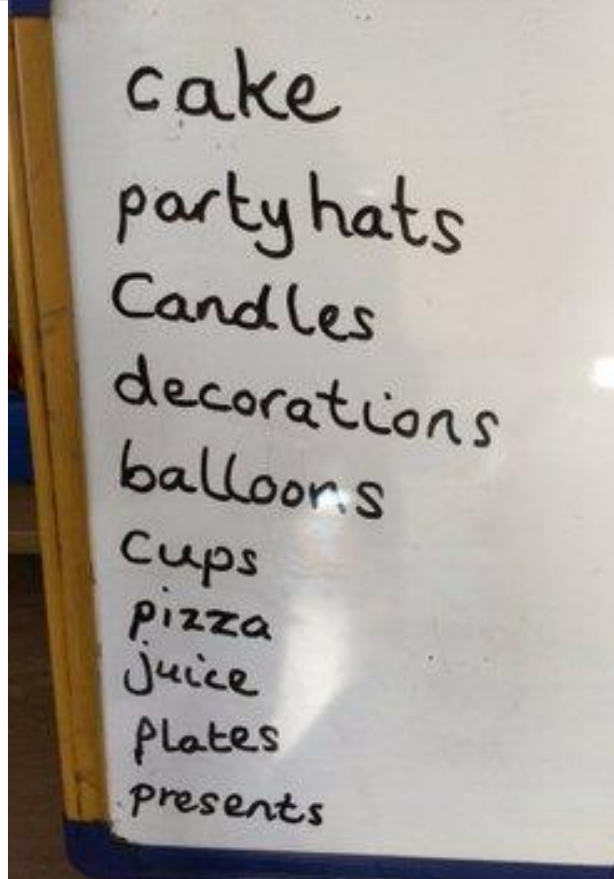 cake
party hats
Candles
decorations
balloons
cups
pizza
juice
plates
presents